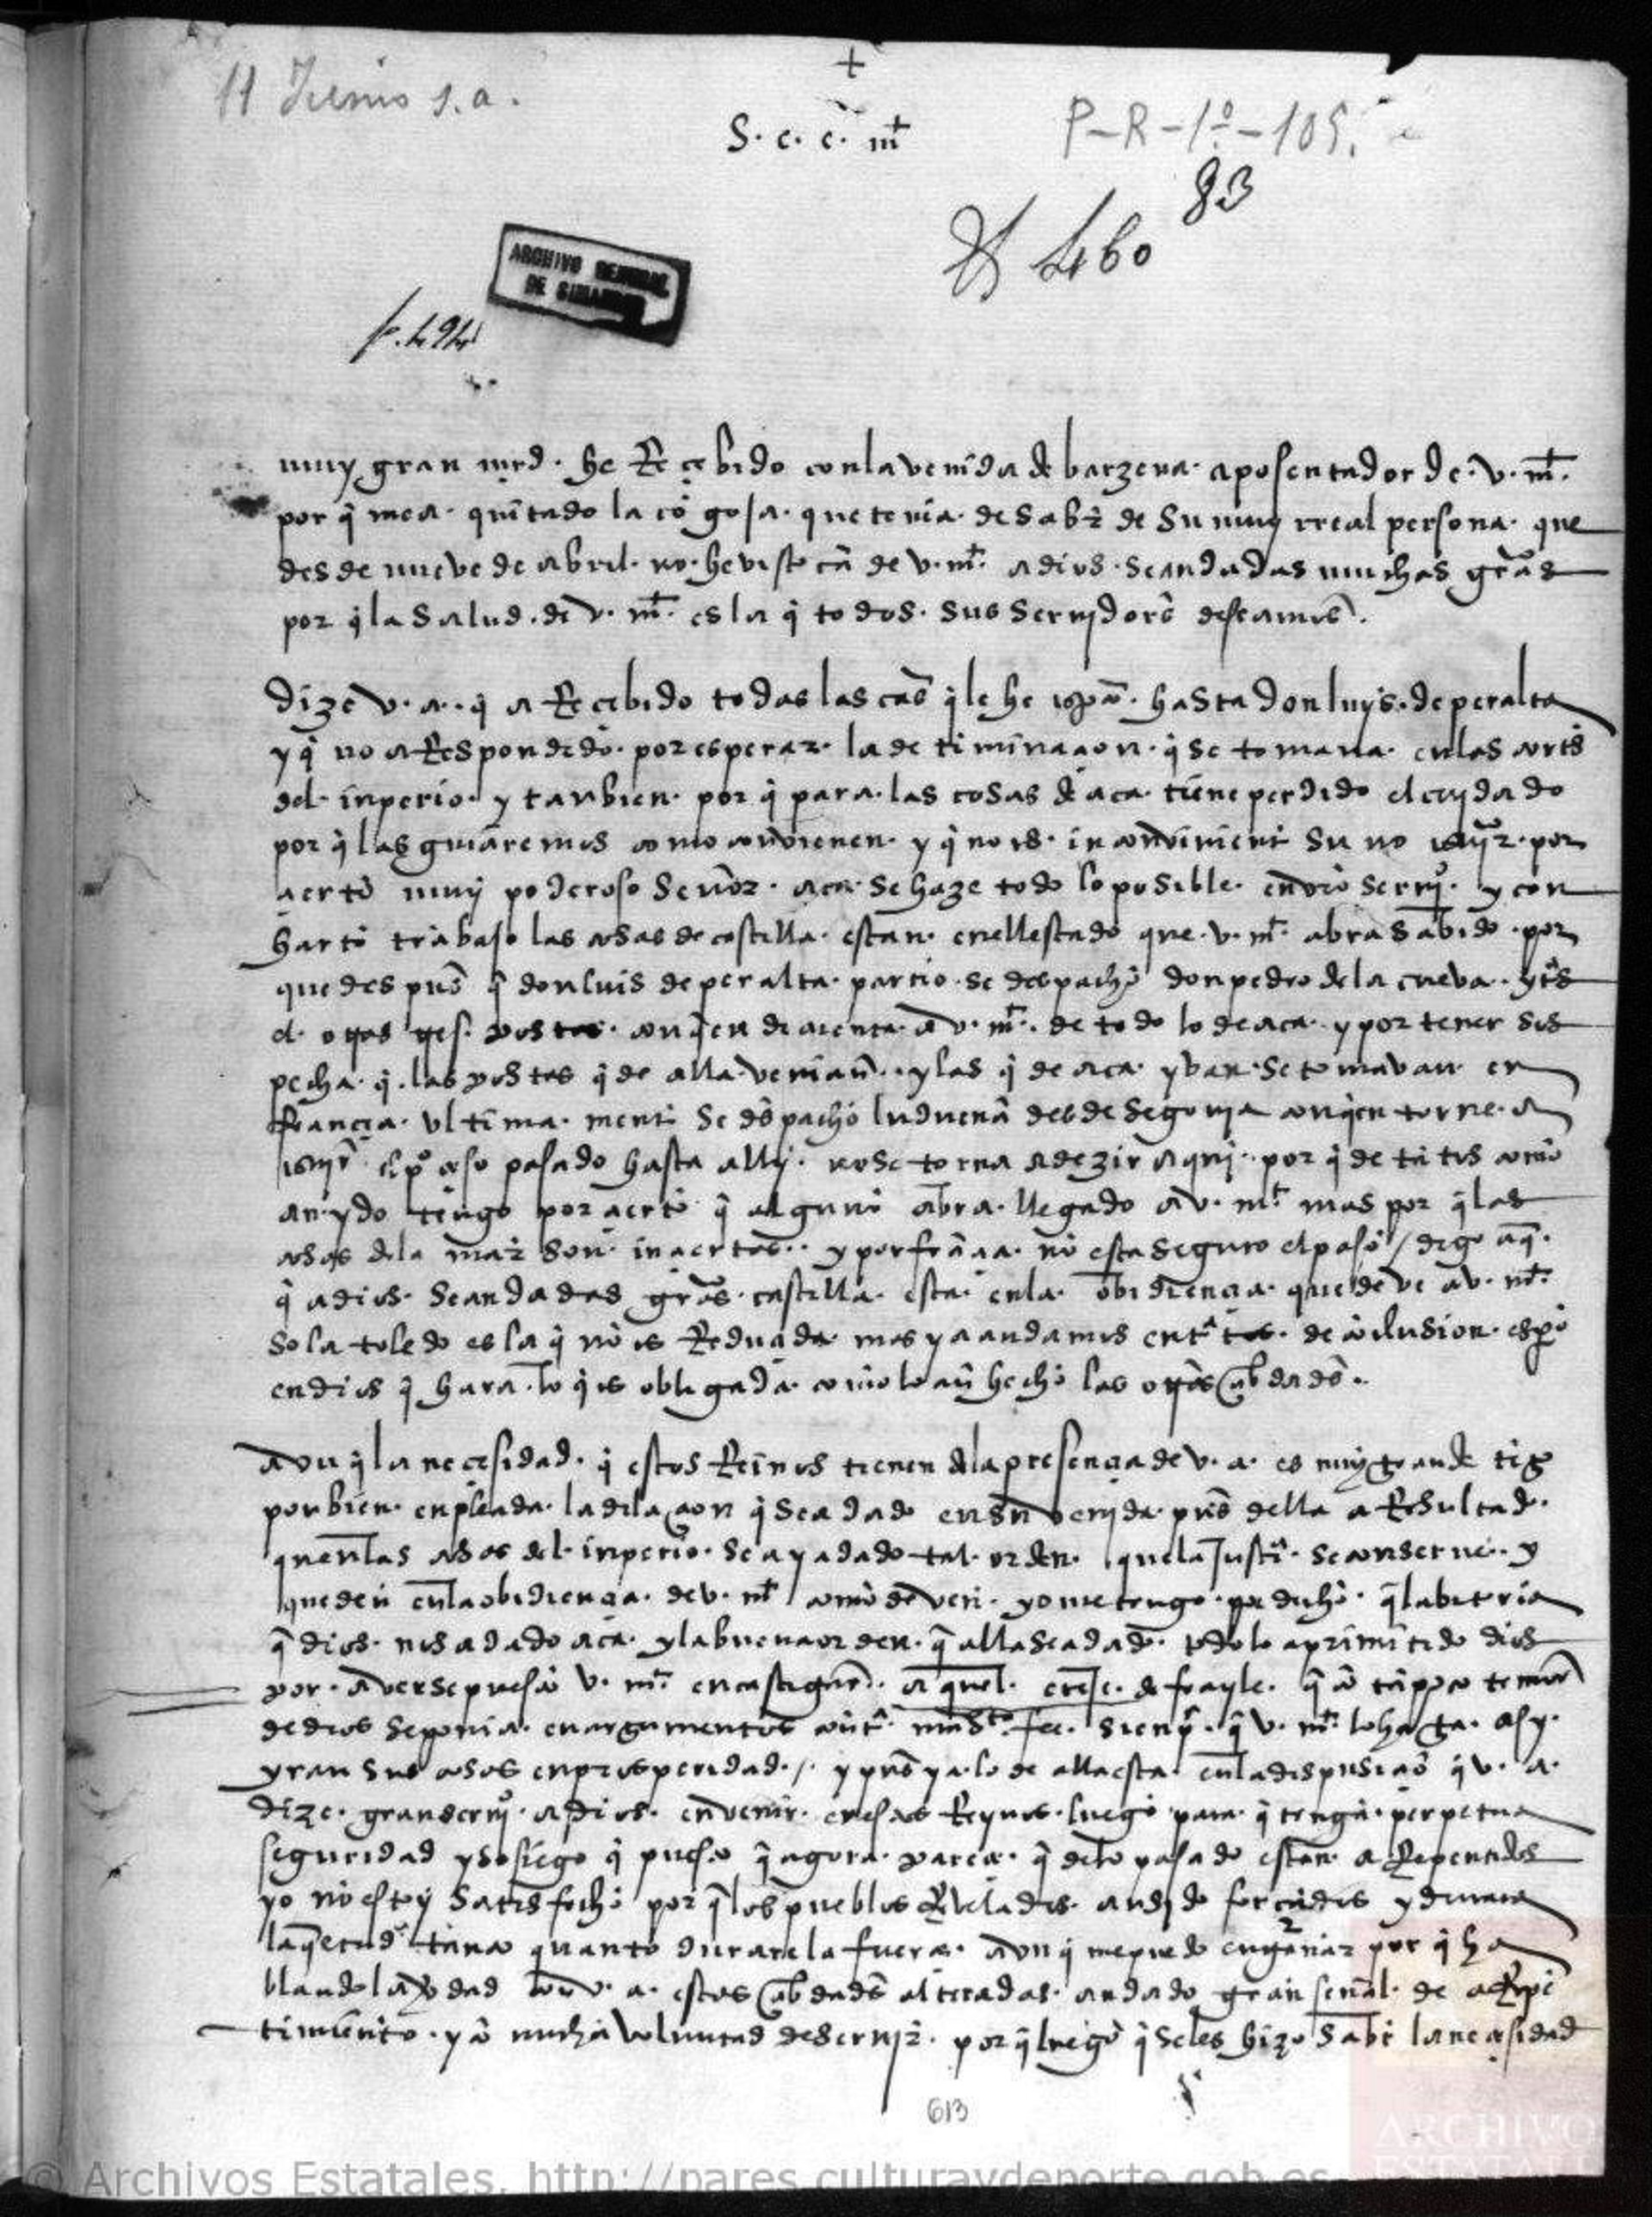 11 Junio s.a.
+
S. c. c. m̄t
P-R-1º-105.
83
460
f. 494
ARCHIVO GENERAL
DE SIMANCAS
muy gran mrd. he Recebido con la venida de barzena. aposentador de. v. mt.
por q̄ me a. quitado la cōgoxa. que tenia. de sabr̄ de su muy rreal persona. que
desde nueve de abril. no. he visto cā de v. mt. a dios. sean dadas muchas grās
por q̄ la salud. de v. mt. es la q̄ todos. sus servidorēs deseamos.
Dize v. a.. q̄ a Recebido todas las cās q̄ le he hasta don luys. de peralta
y q̄ no a Respondido. por esperar. la detīminacion. q̄ se tomava. en las cortēs
del. inperio. y tanbien. por q̄ para. las cosas de aca. tiene perdido el cuydado
por q̄ las guiaremos como convienen. y q̄ no es. inconvinient su no por
cierto muy poderoso senōr. aca. se haze todo lo posible. en vr̄o serviº. y con
harto trabajo las cosas de castilla. estan. en el estado que. v. mt. abra sabido. por
que despuēs q̄ don luis de peralta. partio. se despacho don pedro de la cueva.
el. postas. con quien di cuenta. a v. mt. de todo lo de aca. y por tener sos
pecha. q̄. las postas q̄ de alla venian.. y las q̄ de aca. yvan. se tomavan en
francia. ultima. ment se despacho luduena desde segovia con quien torne. a
pasado hasta alli. no se torna a dezir aqui. por q̄ de tātos como
an ydo tengo por cierto q̄ alguno abra. llegado a v. mt. mas por q̄ las
cosas de la mar son. inciertas.. y por frācia. no esta seguro el paso / digo aq̄.
q̄ a dios. sean dadas grās. castilla. esta. en la. obidiencia. que deve a v. mt.
sola toledo es la q̄ no es Reducida mas ya andamos de cōclusion. espº
en dios q̄ hara. lo q̄ es obligada. como lo an hecho las otras cibdadēs..
Aun q̄ la necesidad. q̄ estos Reinos tienen de la presencia de v. a. es muy grande tēgo
por bien. enpleada. la dilacion q̄ se a dado en su venida. puēs della a Resultado.
que en las cosas del. inperio. se aya dado tal. orden. que la Justiª. se conserve.. y
queden en la obidiencia. de v. mt como deven. yo me tengo. por dicho. q̄ la bitoria
q̄ dios. nos a dado aca. y la buena orden. q̄ alla se a dado. todo lo a primitido dios
por. averse puesto v. mt. en castigar. aquel. ereje. de frayle. q̄ cō tā poco temor
de dios se ponia. en argumentos contª. nr̄a stª. fee. sienpr̄. q̄ v. mt. lo haga. asy.
yran sus cosas en prosperidad. /. y puēs ya. lo de alla esta. en la dispusiciō q̄ v. a.
dize. gran serviº. a dios. en venir. en esos Reynos. luego para. q̄ tengā. perpetua
seguridad y sosiego q̄ puesto q̄ agora. parece. q̄ de lo pasado estan. a Repentidos
yo no estoy satisfecho por q̄ los pueblos Revelados. an sydo forcados y durara
la quietud tanto quanto durare la fuerça. aun q̄ me puedo engañar por q̄ ha
blando la v̄dad con v. a. estas cibdadēs alteradas. an dado gran senal. de a Repē
timiento. y cō mucha voluntad de servir. por q̄ luego q̄ se les hizo sabr̄ la necesidad
613
© Archivos Estatales, http://pares.culturaydeporte.gob.es
ARCHIVOS
ESTATALES